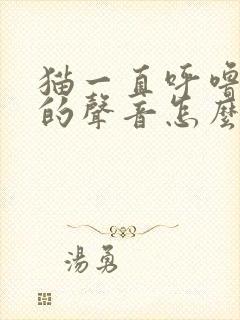 猫一直呼嚕
的聲音怎麼
湯勇